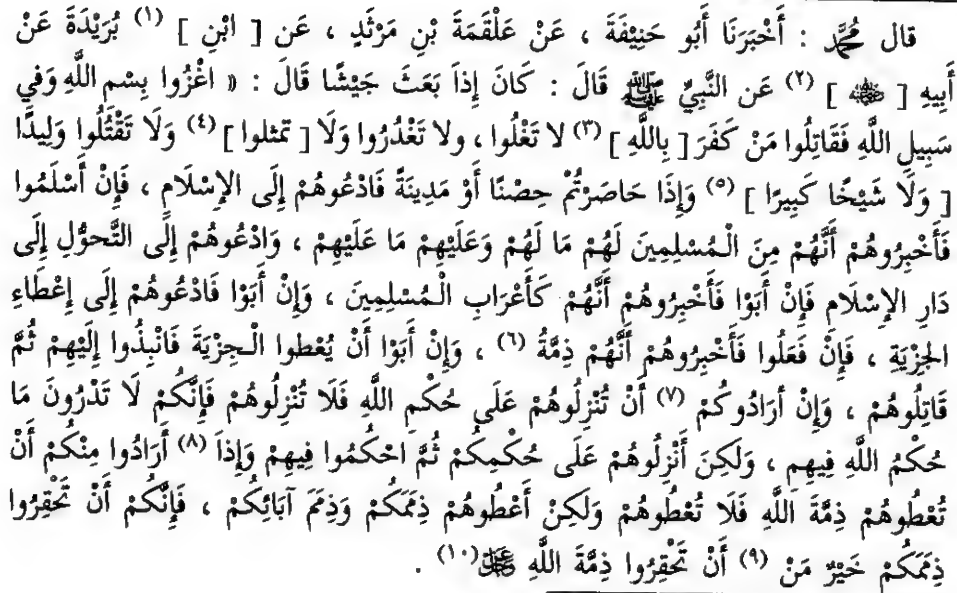 قال مُحَمَّد : أَخْبَرَنَا أَبُو حَنِيْفَةَ ، عَنْ عَلْقَمَةَ بْنِ مَرْثَدٍ ، عَن [ ابْنِ ] (١) بُرَيْدَةَ عَنْ
أَبِيهِ [ ﷺ ] (٢) عَن النَّبِيِّ ﷺ قَالَ : كَانَ إِذاَ بَعَثَ جَيْشًا قَالَ : « اغْزُوا بِسْمِ اللَّهِ وَفي
سَبِيلِ اللَّهِ فَقَاتِلُوا مَنْ كَفَرَ [ بِاللَّهِ ] (٣) لا تَغْلُوا ، ولا تَغْدُرُوا وَلَا [ تمثلوا ] (٤) وَلَا تَقْتُلُوا وَلِيدًا
[ وَلَا شَيْخًا كَبِيرًا ] (٥) وَإِذَا حَاصَرْتُمْ حِصْنًا أَوْ مَدِينَةً فَادْعُوهُمْ إِلَى الإِسْلَامِ ، فَإِنْ أَسْلَمُوا
فَأَخْبِرُوهُمْ أَنَّهُمْ مِنَ الْمُسْلِمِينَ لَهُمْ مَا لَهُمْ وَعَلَيْهِمْ مَا عَلَيْهِمْ ، وَادْعُوهُمْ إِلَى التَّحوُّلِ إِلَى
دَارِ الإِسْلَامِ فَإِنْ أَبَوْا فَأَخْبِرُوهُمْ أَنَّهُمْ كَأَعْرَابِ الْمُسْلِمِينَ ، وَإِنْ أَبَوْا فَادْعُوهُمْ إِلَى إِعْطَاءِ
الجِزْيَةِ ، فَإِنْ فَعَلُوا فَأَخْبِرُوهُمْ أَنَّهُمْ ذِمَّةُ (٦) ، وَإِنْ أَبَوْا أَنْ يُعْطوا الْجِزْيَةَ فَانْبِذُوا إِلَيْهِمْ ثُمَّ
قَاتِلُوهُمْ ، وَإِنْ أرَادُوكُمْ (٧) أَنْ تُنْزِلُوهُمْ عَلَى حُكْمِ اللَّهِ فَلَا تُنْزِلُوهُمْ فَإِنَّكُمْ لَا تَدْرُونَ مَا
حُكْمُ اللَّهِ فِيهِم ، وَلَكِنَ أَنْزِلُوهُمْ عَلَى حُكْمِكُمْ ثُمَّ احْكُمُوا فِيهِمْ وَإِذاَ (٨) أَرَادُوا مِنْكُمْ أَنْ
تُعْطُوهُمْ ذِمَّةَ اللَّهِ فَلَا تُعْطُوهُمْ وَلَكِنْ أَعْطُوهُمْ ذِمَمَكُمْ وَذِمَمَ آبَائِكُمْ ، فَإِنَّكُمْ أَنْ تَحْقِرُوا
ذِمَمَكُمْ خَيْرٌ مَنْ (٩) أَنْ تَحْقِرُوا ذِمَّةَ اللَّهِ ﷻ (١٠) .